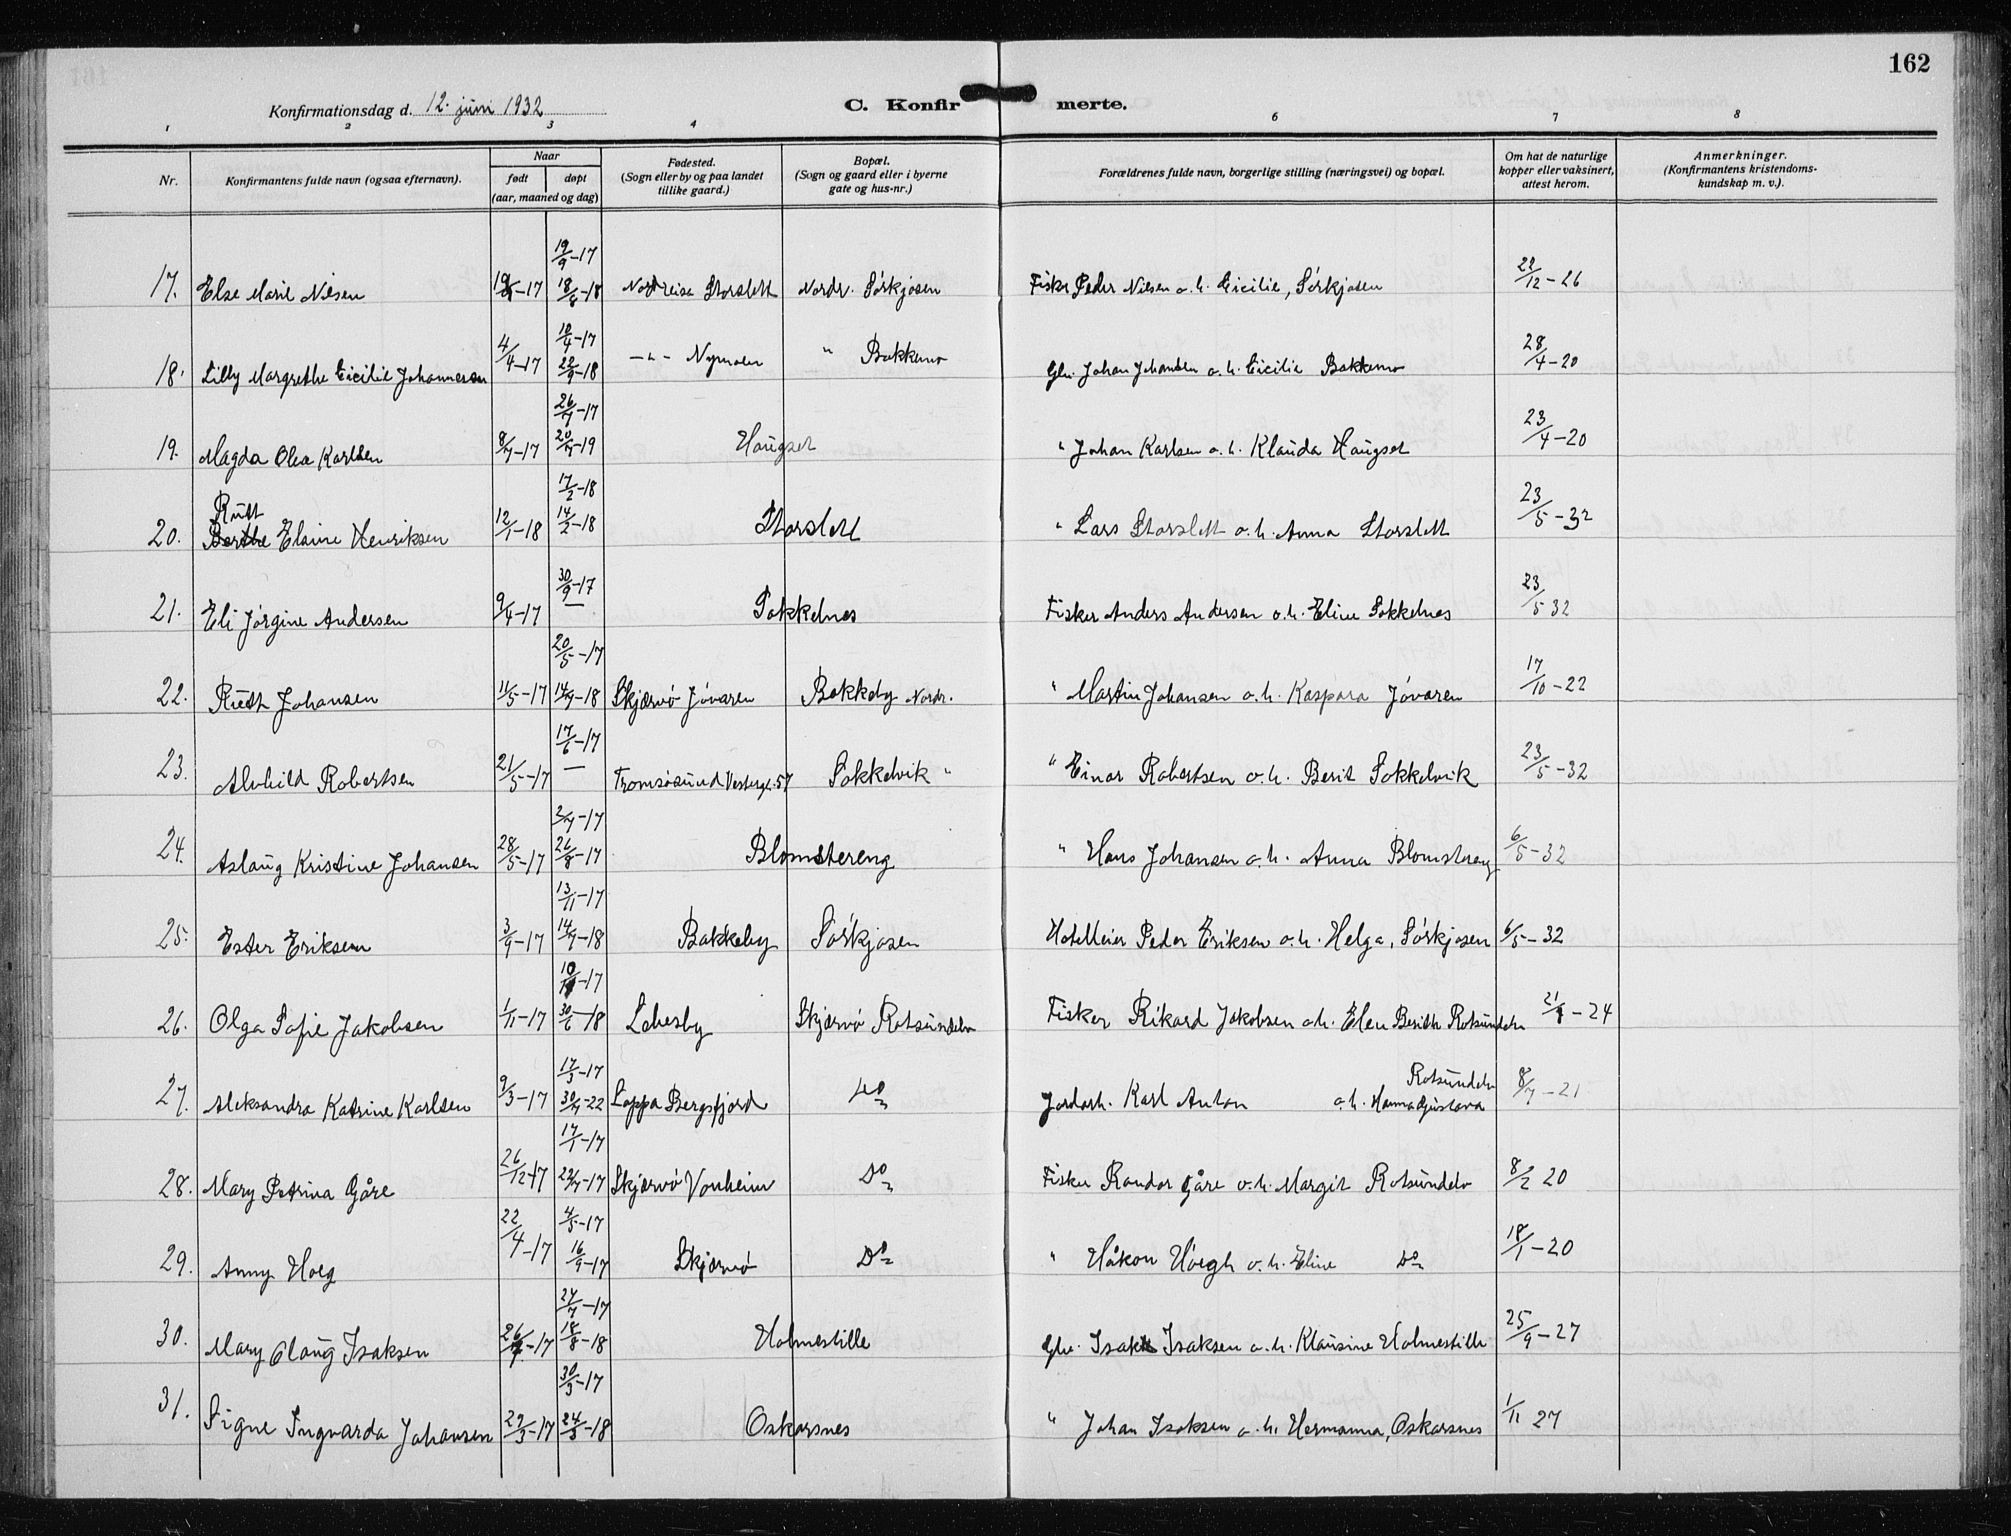 162
Konfirmationsdag d. 12. juni 1932
C. Konfirmerte.
1 2 3 4 6 7 8
Nr. Konfirmantens fulde navn (ogsaa efternavn). Naar født døpt (aar, maaned og dag) Fødested. (Sogn eller by og paa landet tillike gaard.) Bopæl. (Sogn og gaard eller i byerne gate og hus-nr.) Forældrenes fulde navn, borgerlige stilling (næringsvei) og bopæl. Om hat de naturlige kopper eller vaksinert, attest herom. Anmerkninger. (Konfirmantens kristendomskundskap m. v.).
19/9-17
17. Else Marie Nilsen 18/6-18 Nordreisa Storslett Nordr. Sörkjosen Fisker Peder Nilsen o. h. Cicilie, Sörkjosen 22/12-26
10/4-17
18. Lilly Margrethe Cicilie Johannesen 4/4-17 22/9-18 -"- Nymoen " Bakkemo Gbr. Johan Johansen o. h. Cicilie Bakkemo 28/4-20
26/7-17
19. Magda Olea Karlsen 8/7-17 20/7-19 Haugset " Johan Karlsen o. h. Klauda Haugset 23/4-20
17/2-18
Rutt
20. Berthe Elaine Henriksen 12/1-18 14/2-18 Storslett " Lars Storslett o. h. Anna Storslett 23/5-32
30/9-17
21. Eli Jörgine Andersen 9/4-17 — Sokkelnes Fisker Anders Andersen o. h. Eline Sokkelnes 23/5 32
20/5-17
22. Ruth Johansen 11/5-17 14/7-18 Skjærvö Jövaren Bakkeby Nordr. " Martin Johansen o. h. Kaspara Jövaren 17/10-22
17/6-17
23. Alvhild Robertsen 21/5-17 — Tromsösund Vestergt. 57 Sokkelvik " " Einar Robertsen o. h. Berit Sokkelvik 23/5-32
2/7-17
24. Aslaug Kristine Johansen 28/5-17 26/8-17 Blomstereng " Hans Johansen o. h. Anna Blomstereng 6/5-32
13/11-17
25. Ester Eriksen 3/9-17 14/7-18 Bakkeby Sörkjosen Hotelleier Peder Eriksen o. h. Helga, Sörkjosen 6/5-32
26. Olga Sofie Jakobsen 1/11-17 30/6-18 Lebesby Skjærvö Rotsundelv Fisker Rikard Jakobsen o. h. Elen Berith Rotsundelv -24
17/3-17
27. Aleksandra Katrine Karlsen 9/3-17 30/7-22 Loppa Bergsfjord Do Jordarb. Karl Anton o. h. Hanna Gustava Rotsundelv 8/7-21
17/1-17
28. Mary Petrina Gåre 26/12-17 29/7-17 Skjærvö Vonheim Do Fisker Randor Gåre o. h. Margit Rotsundelv 8/2 20
4/5-17
29. Anny Hoeg 22/4-17 16/9-17 Skjærvö Do " Håkon Höegh o. h. Eline Do 18/1-20
24/7-17
30. Mary Olaug Isaksen 18/8-18 Holmestille Gbr. Isak Isaksen o. h. Klausine Holmestille 25/9-27
30/3-17
31. Signe Ingvarda Johansen 29/3-17 24/3-18 Oskarsnes " Johan Isaksen o. h. Hermanna, Oskarsnes 1/11 27